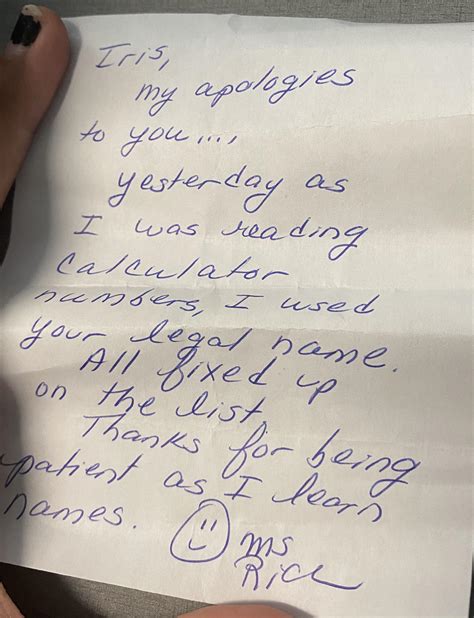 Iris,
my apologies
to you...,
yesterday as
I was reading
calculator
numbers, I used
your legal name.
All fixed up
on the list
Thanks for being
patient as I learn
names.
ms
Rich